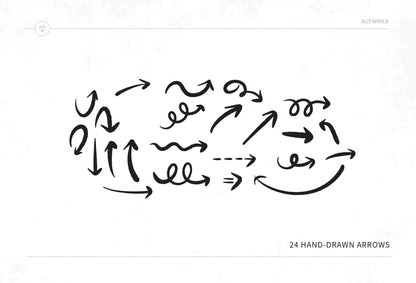 ALTWRKS
24 HAND-DRAWN ARROWS